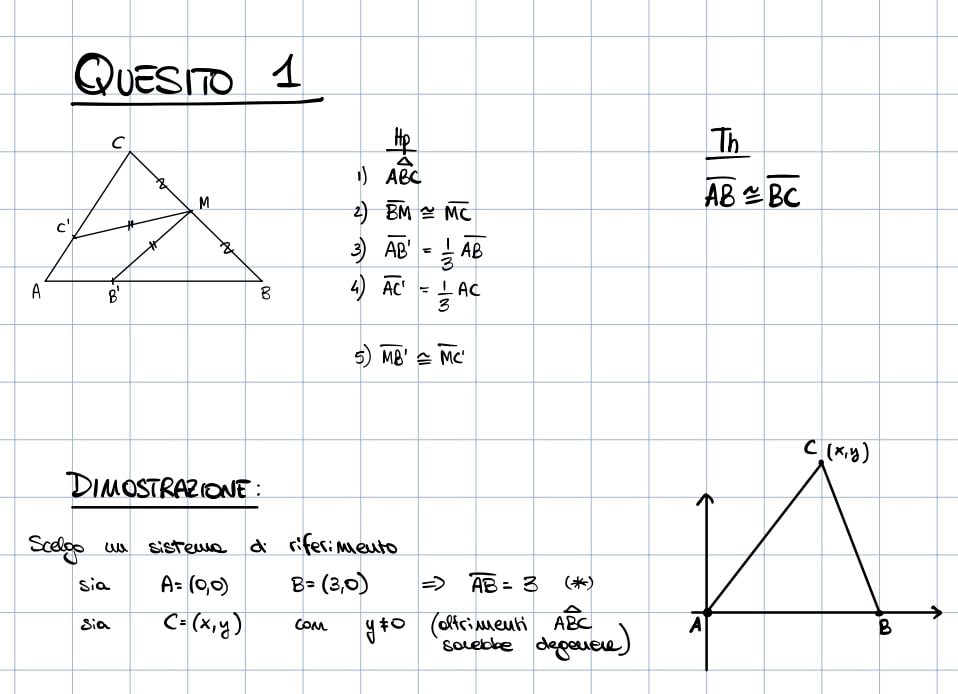 QUESITO 1
C
M
C'
A
B'
B
Hp
1) ABC
2) BM ≅ MC
3) AB' = 1/3 AB
4) AC' = 1/3 AC
5) MB' ≅ MC'
Th
AB ≅ BC
DIMOSTRAZIONE:
Scelgo un sistema di riferimento
sia A=(0,0) B=(3,0) ⇒ AB = 3 (*)
sia C=(x,y) con y≠0 (altrimenti ABC
sarebbe degenere)
C (x,y)
A
B